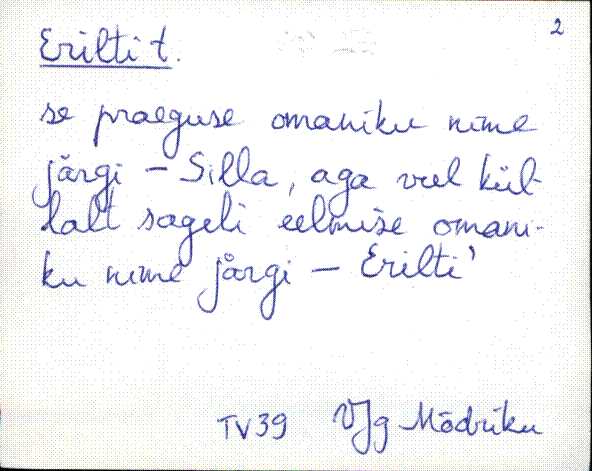 2
Erilti t.
se praeguse omaniku nime
järgi – Silla, aga veel kül-
lalt sageli eelmise omani-
ku nime järgi – Erilti'
TV39 VJg Mõdriku